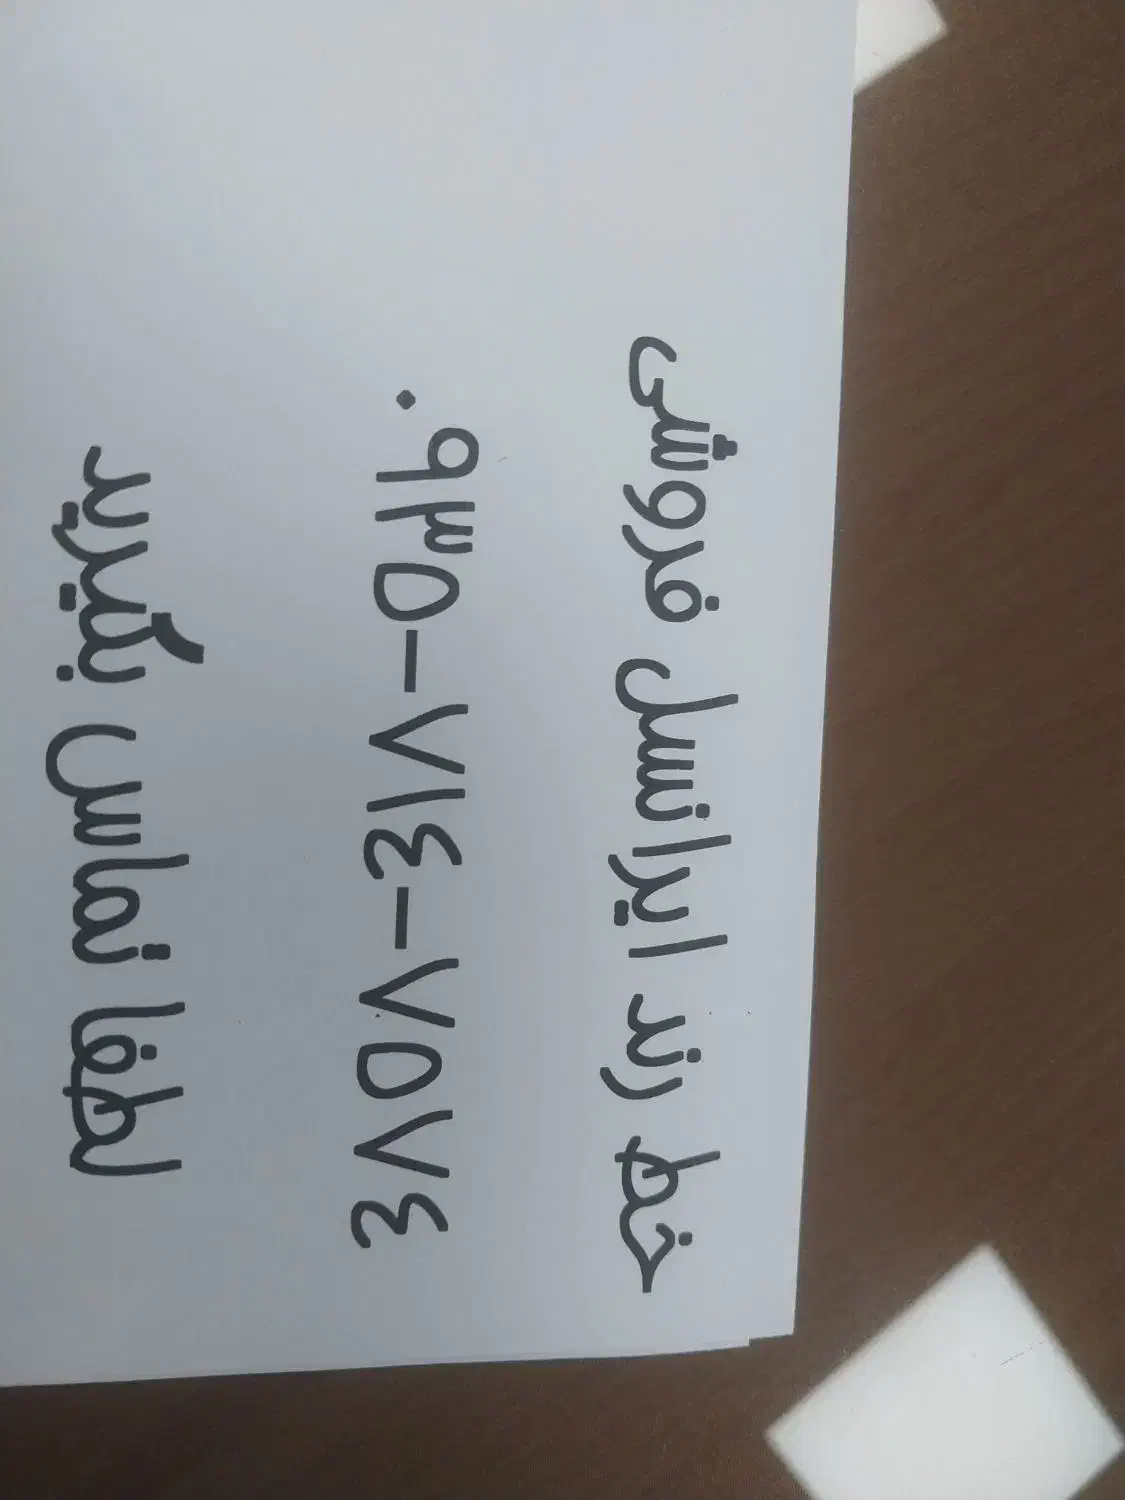 خط رند ایرانسل فروشی
۰۹۳۵-۷۱٤-۷۵۷٤
لطفا تماس بگیرید